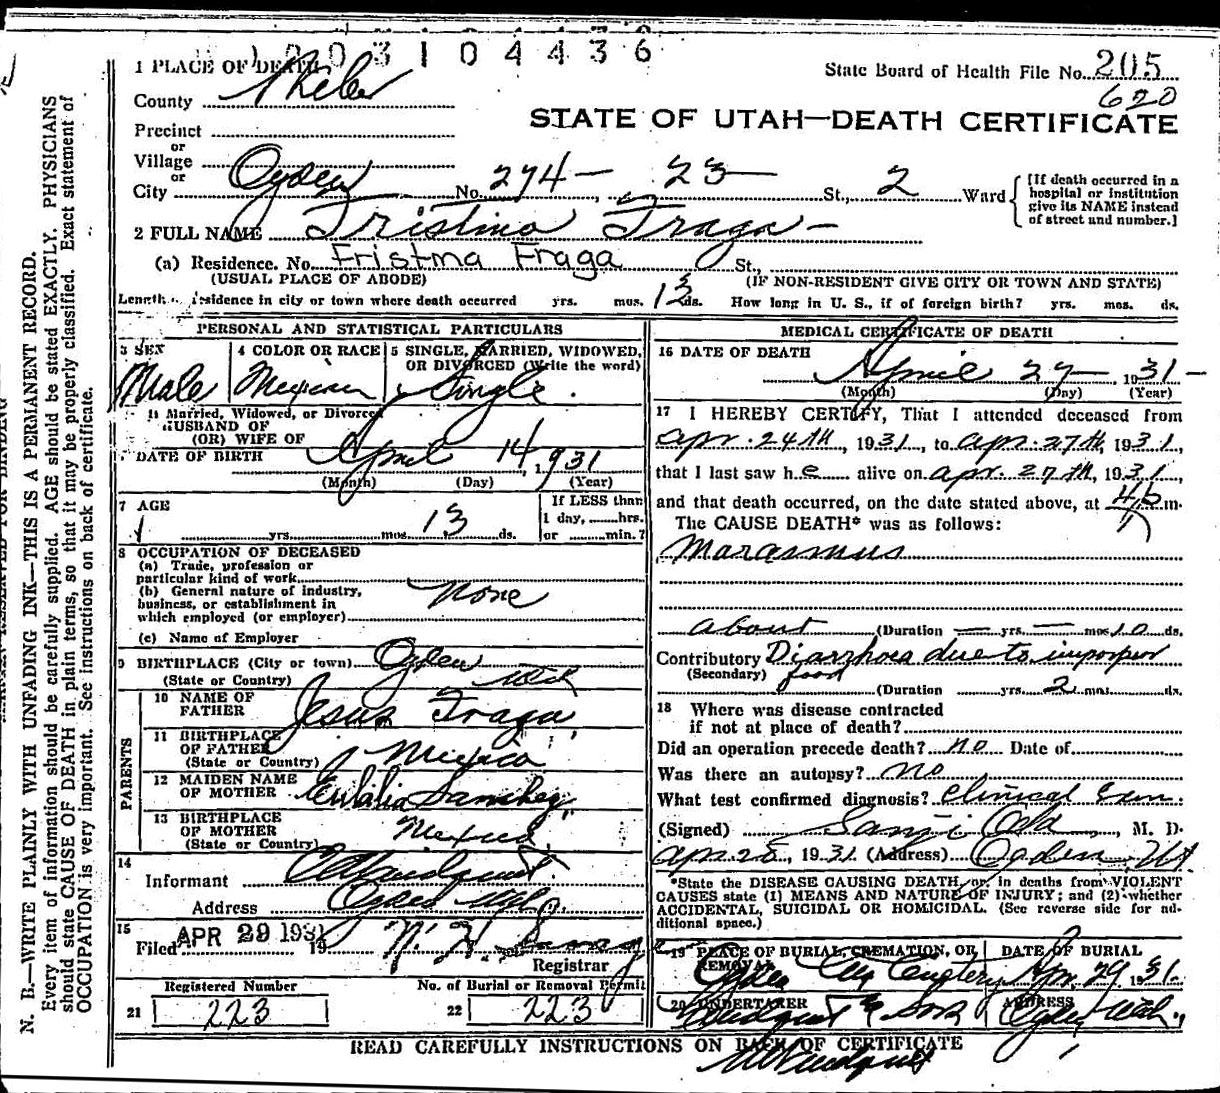 1 0 0 3 1 0 4 4 3 6
1 PLACE OF DEATH
State Board of Health File No. 205
620
County Weber
STATE OF UTAH—DEATH CERTIFICATE
Precinct
or
Village
or
City Ogden No. 274 — 23 — St., 2 Ward
[If death occurred in a hospital or institution give its NAME instead of street and number.]
2 FULL NAME Fristina Fraga —
(a) Residence. No. Fristma Fraga St.,
(USUAL PLACE OF ABODE) (IF NON-RESIDENT GIVE CITY OR TOWN AND STATE)
Length residence in city or town where death occurred yrs. mos. 13 ds. How long in U. S., if of foreign birth? yrs. mos. ds.
PERSONAL AND STATISTICAL PARTICULARS
3 SEX Male
4 COLOR OR RACE Mexican
5 SINGLE, MARRIED, WIDOWED, OR DIVORCED (Write the word) Single.
If Married, Widowed, or Divorced
HUSBAND OF
(OR) WIFE OF
DATE OF BIRTH April 14, 1931
(Month) (Day) (Year)
7 AGE yrs. mos. 13 ds.
If LESS than 1 day, hrs. or min.?
8 OCCUPATION OF DECEASED
(a) Trade, profession or
particular kind of work
(b) General nature of industry,
business, or establishment in
which employed (or employer)
None
(c) Name of Employer
9 BIRTHPLACE (City or town) Ogden
(State or Country) Utah
PARENTS
10 NAME OF FATHER Jesus Fraga
11 BIRTHPLACE OF FATHER (State or Country) Mexico
12 MAIDEN NAME OF MOTHER Eulalia Sanchez
13 BIRTHPLACE OF MOTHER (State or Country) Mexico
14
Informant
Address Ogden Utah
15 Filed APR 29 1931 19
Registrar
Registered Number
21 223
No. of Burial or Removal Permit
22 223
MEDICAL CERTIFICATE OF DEATH
16 DATE OF DEATH
April 27 — 1931 —
(Month) (Day) (Year)
17 I HEREBY CERTIFY, That I attended deceased from
Apr. 24th, 1931, to Apr. 27th, 1931,
that I last saw h e alive on Apr. 27th, 1931,
and that death occurred, on the date stated above, at m.
The CAUSE DEATH* was as follows:
Marasmus
about (Duration — yrs. — mos. 10 ds.
Contributory Diarrhoea due to improper
(Secondary) food
(Duration yrs. 2 mos. ds.
18 Where was disease contracted
if not at place of death?
Did an operation precede death? no Date of
Was there an autopsy? no
What test confirmed diagnosis? Clinical Exm.
(Signed) M. D.
Apr. 28, 1931 (Address) Ogden, Ut
*State the DISEASE CAUSING DEATH, or, in deaths from VIOLENT
CAUSES state (1) MEANS AND NATURE OF INJURY; and (2) whether
ACCIDENTAL, SUICIDAL OR HOMICIDAL. (See reverse side for ad-
ditional space.)
19 PLACE OF BURIAL, CREMATION, OR REMOVAL Ogden City Cemetery
DATE OF BURIAL Apr. 29 1931.
20 UNDERTAKER Lindquist & Sons
ADDRESS Ogden Utah.
READ CAREFULLY INSTRUCTIONS ON BACK OF CERTIFICATE
N. B.—WRITE PLAINLY WITH UNFADING INK—THIS IS A PERMANENT RECORD.
Every item of Information should be carefully supplied. AGE should be stated EXACTLY. PHYSICIANS
should state CAUSE OF DEATH in plain terms, so that it may be properly classified. Exact statement of
OCCUPATION is very important. See instructions on back of certificate.